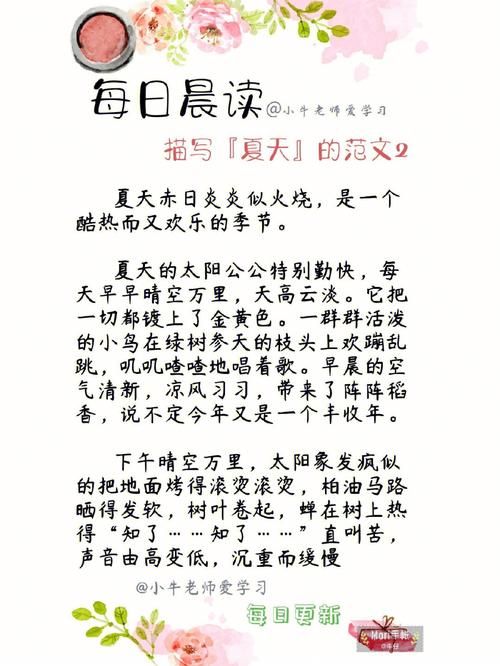 每日晨读@小牛老师爱学习
描写『夏天』的范文2
夏天赤日炎炎似火烧，是一个
酷热而又欢乐的季节。
夏天的太阳公公特别勤快，每
天早早晴空万里，天高云淡。它把
一切都镀上了金黄色。一群群活泼
的小鸟在绿树参天的枝头上欢蹦乱
跳，叽叽喳喳地唱着歌。早晨的空
气清新，凉风习习，带来了阵阵稻
香，说不定今年又是一个丰收年。
下午晴空万里，太阳象发疯似
的把地面烤得滚烫滚烫，柏油马路
晒得发软，树叶卷起，蝉在树上热
得“知了……知了……”直叫苦，
声音由高变低，沉重而缓慢
@小牛老师爱学习
每日更新
Mori手帐